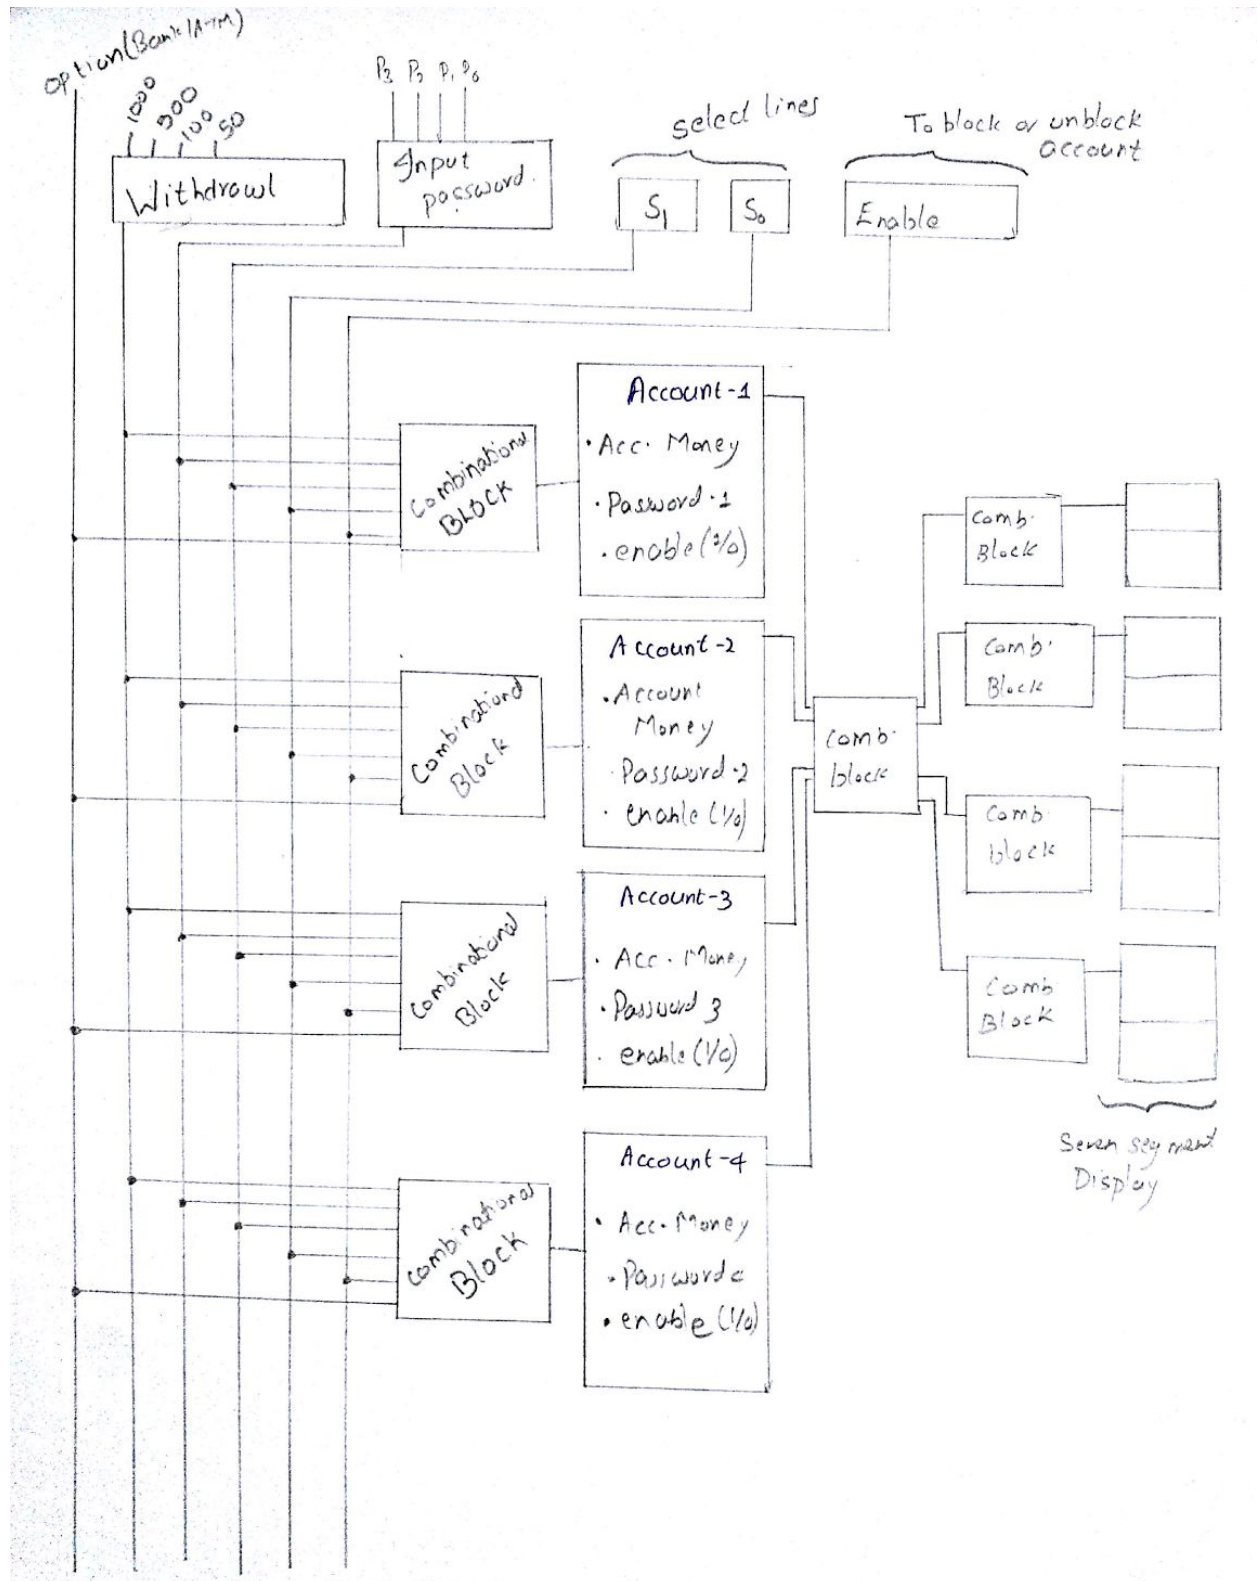 option(Bank/ATM)
1000
500
100
50
Withdrawl
P3 P2 P1 P0
Input
password.
select lines
S1
S0
To block or unblock
account
Enable
Combinational
BLOCK
Account-1
• Acc. Money
• Password-1
• enable (1/0)
Combinational
Block
Account-2
• Account
Money
Password-2
• enable (1/0)
Combinational
Block
Account-3
• Acc. Money
• Password 3
• enable (1/0)
Combinational
Block
Account-4
• Acc. Money
• enable (1/0)
Comb.
block
Comb.
Block
Comb.
Block
Comb.
block
Comb
Block
Seven segment
Display